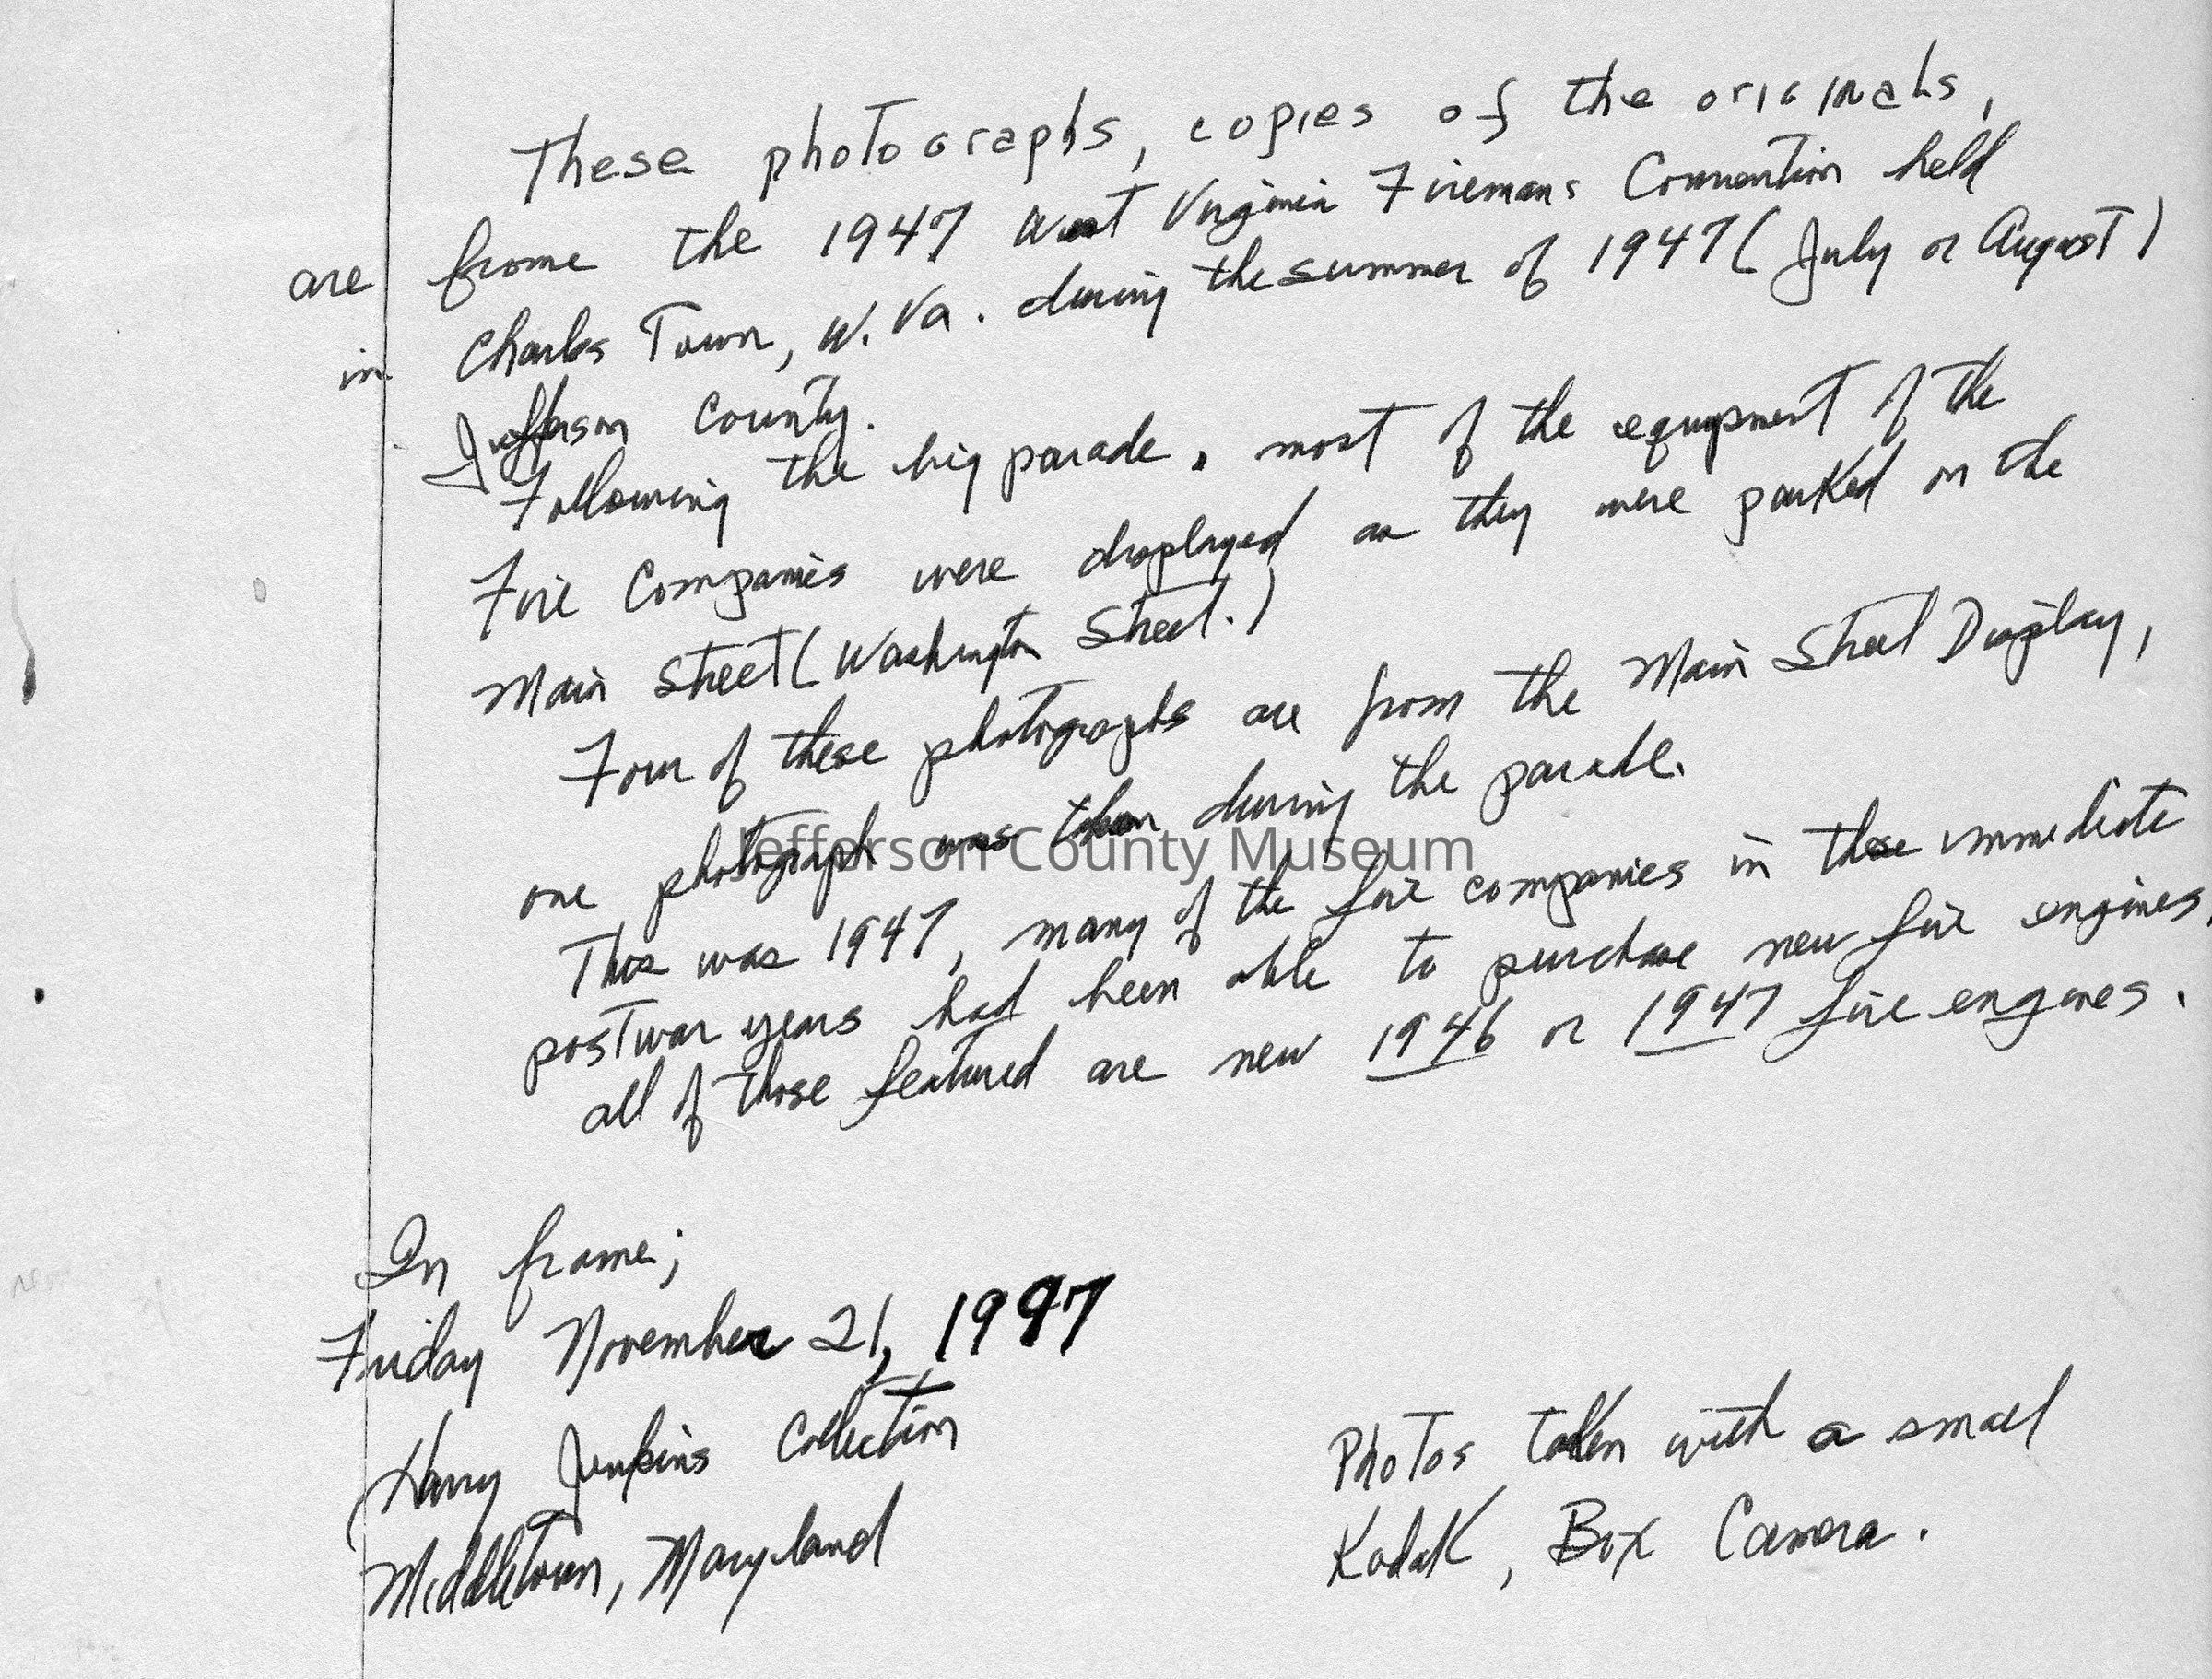 These photographs, copies of the originals,
are frome the 1947 West Virginia Firemans Convention held
in Charles Town, W. Va. during the summer of 1947 (July or August)
Jefferson County.
Following the big parade, most of the equipment of the
Fire Companies were displayed as they were parked on the
Main Street (Washington Street.)
Four of these photographs are from the Main Street Display,
one photograph was taken during the parade.
Jefferson County Museum
This was 1947, many of the fire companies in these immediate
postwar years had been able to purchase new fire engines,
all of those featured are new 1946 or 1947 fire engines.
In frame;
Friday November 21, 1997
Harry Jenkins Collection
Middletown, Maryland
Photos taken with a small
Kodak, Box Camera.